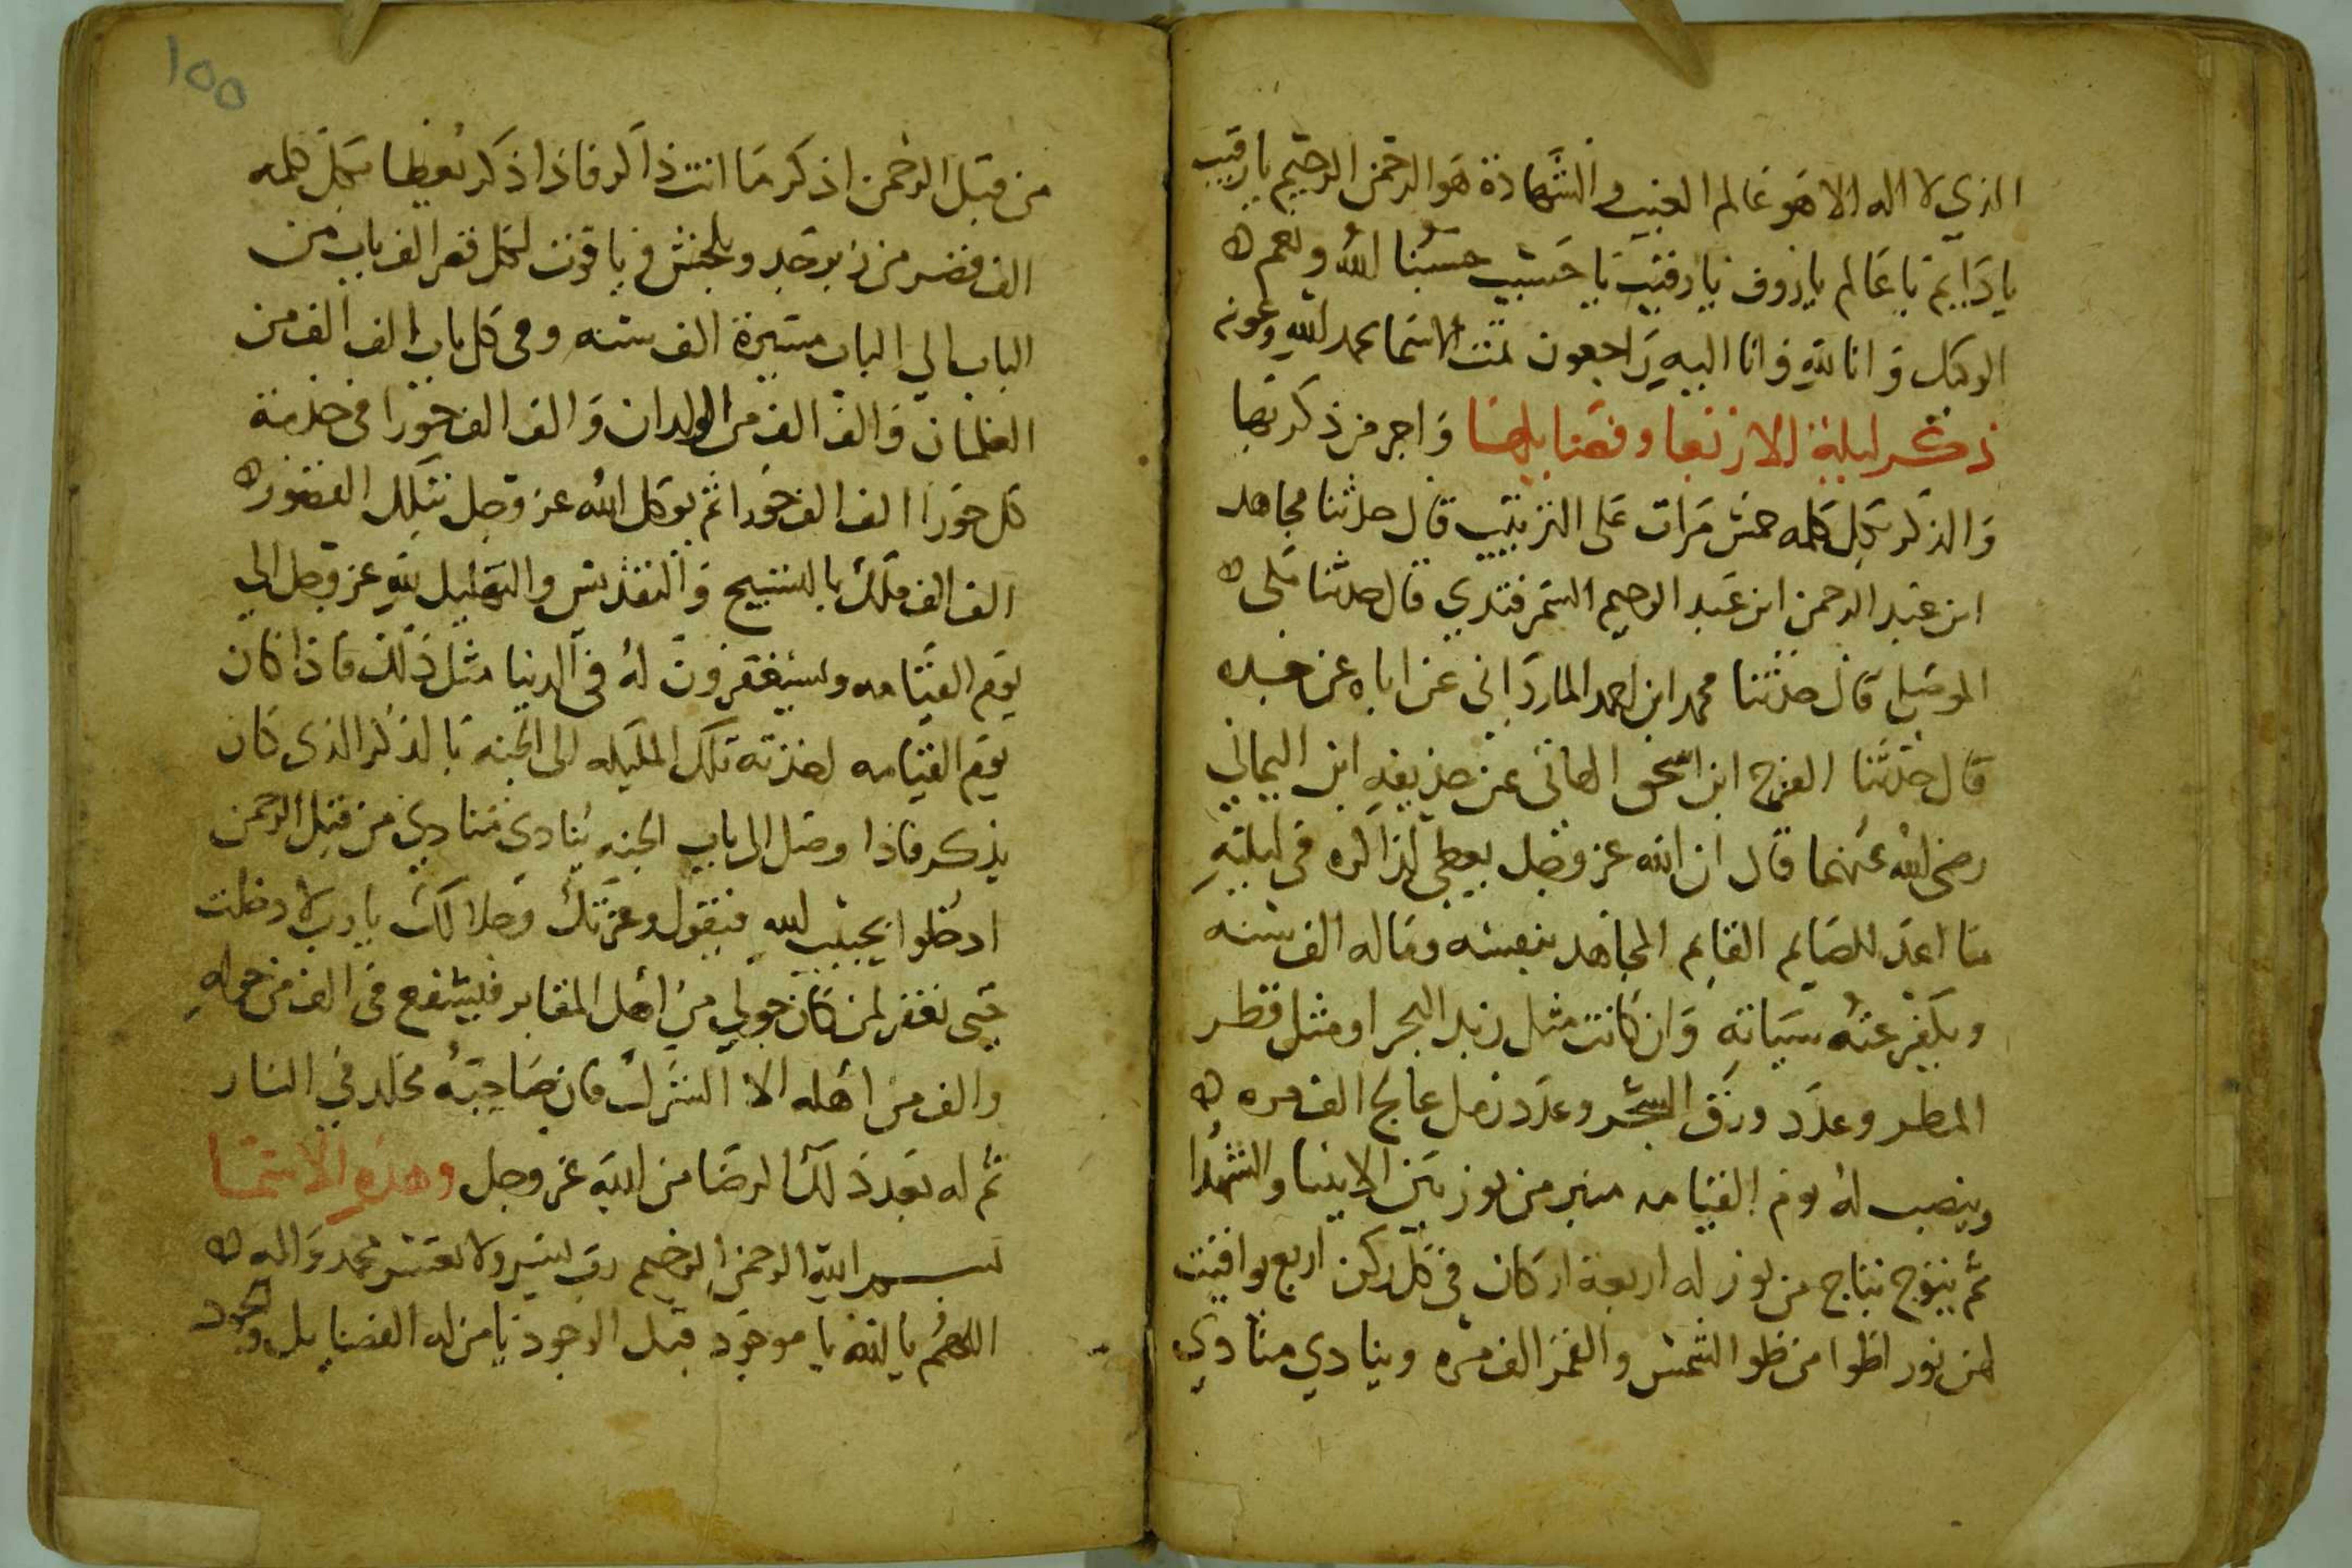 الذي لا اله الا هو عالم الغيب والشهادة هو الرحمن الرحيم يا رقيب
يا دايم يا عالم يا روف يا رقيب يا حسيب حسبنا الله ونعم
الوكيل وانا لله وانا اليه راجعون تمت الاسما بحمد الله وعونه
ذكر ليلة الاربعا وفضايلها واجر من ذكر بها
والذكر بكل كلمه خمس مرات على الترتيب قال حدثنا مجاهد
ابن عبد الرحمن ابن عبد الرحيم السمرقندي قال حدثنا مكى
الموصلي قال حدثنا محمد ابن احمد الماردانى عن اباه عن جده
قال حدثنا الفرج ابن اسحق الهانى عن حذيفه ابن اليماني
رضى الله عنهما قال ان الله عز وجل يعطى لذاكره فى ليلته
ما اعد للصايم القايم المجاهد بنفسه وماله الف سنه
ويكفر عنه سياته وان كانت مثل زبد البحر او مثل قطر
المطر وعدد ورق الشجر وعدد رمل عالج الف مره
وينصب له يوم القيامه منبر من نور بين الانبيا والشهدا
ثم يتوج بتاج من نور له اربعة اركان في كل ركن اربع يواقيت
لهن نور اضوا من ضو الشمس والقمر الف مره وينادي منادي
١٥٥
من قبل الرحمن اذكر ما انت ذاكر فاذا ذكر يعطا بكل كلمه
الف قصر من زبرجد وبلخش وياقوت لكل قصر الف باب من
الباب الي الباب مسيرة الف سنه وفى كل باب الف الف من
الغلمان والف الف من الولدان والف الف حورا فى خدمة
كل حورا الف الف حورا ثم يوكل الله عز وجل بتلك القصور
الف الف ملك بالتسبيح والتقديس والتهليل لله عز وجل الي
يوم القيامه ويستغفرون له في الدنيا مثل ذلك فاذا كان
يوم القيامه اخذته تلك المليكه الى الجنه بالذكر الذى كان
يذكر فاذا وصل الى باب الجنه ينادى منادي من قبل الرحمن
ادخلوا بحبيب الله فيقول وعزتك وجلالك يا رب لا دخلت
حتى تغفر لمن كان حولي من اهل المقابر فيشفع فى الف من حوله
والف من اهله الا الشرك فان صاحبه مخلد في النار
ثم له بعد ذلك الرضا من الله عز وجل وهذه الاسما
بسم الله الرحمن الرحيم رب يسر ولا تعسر محمد واله
اللهم يا الله يا موجود قبل الوجود يا من له الفضايل والجود